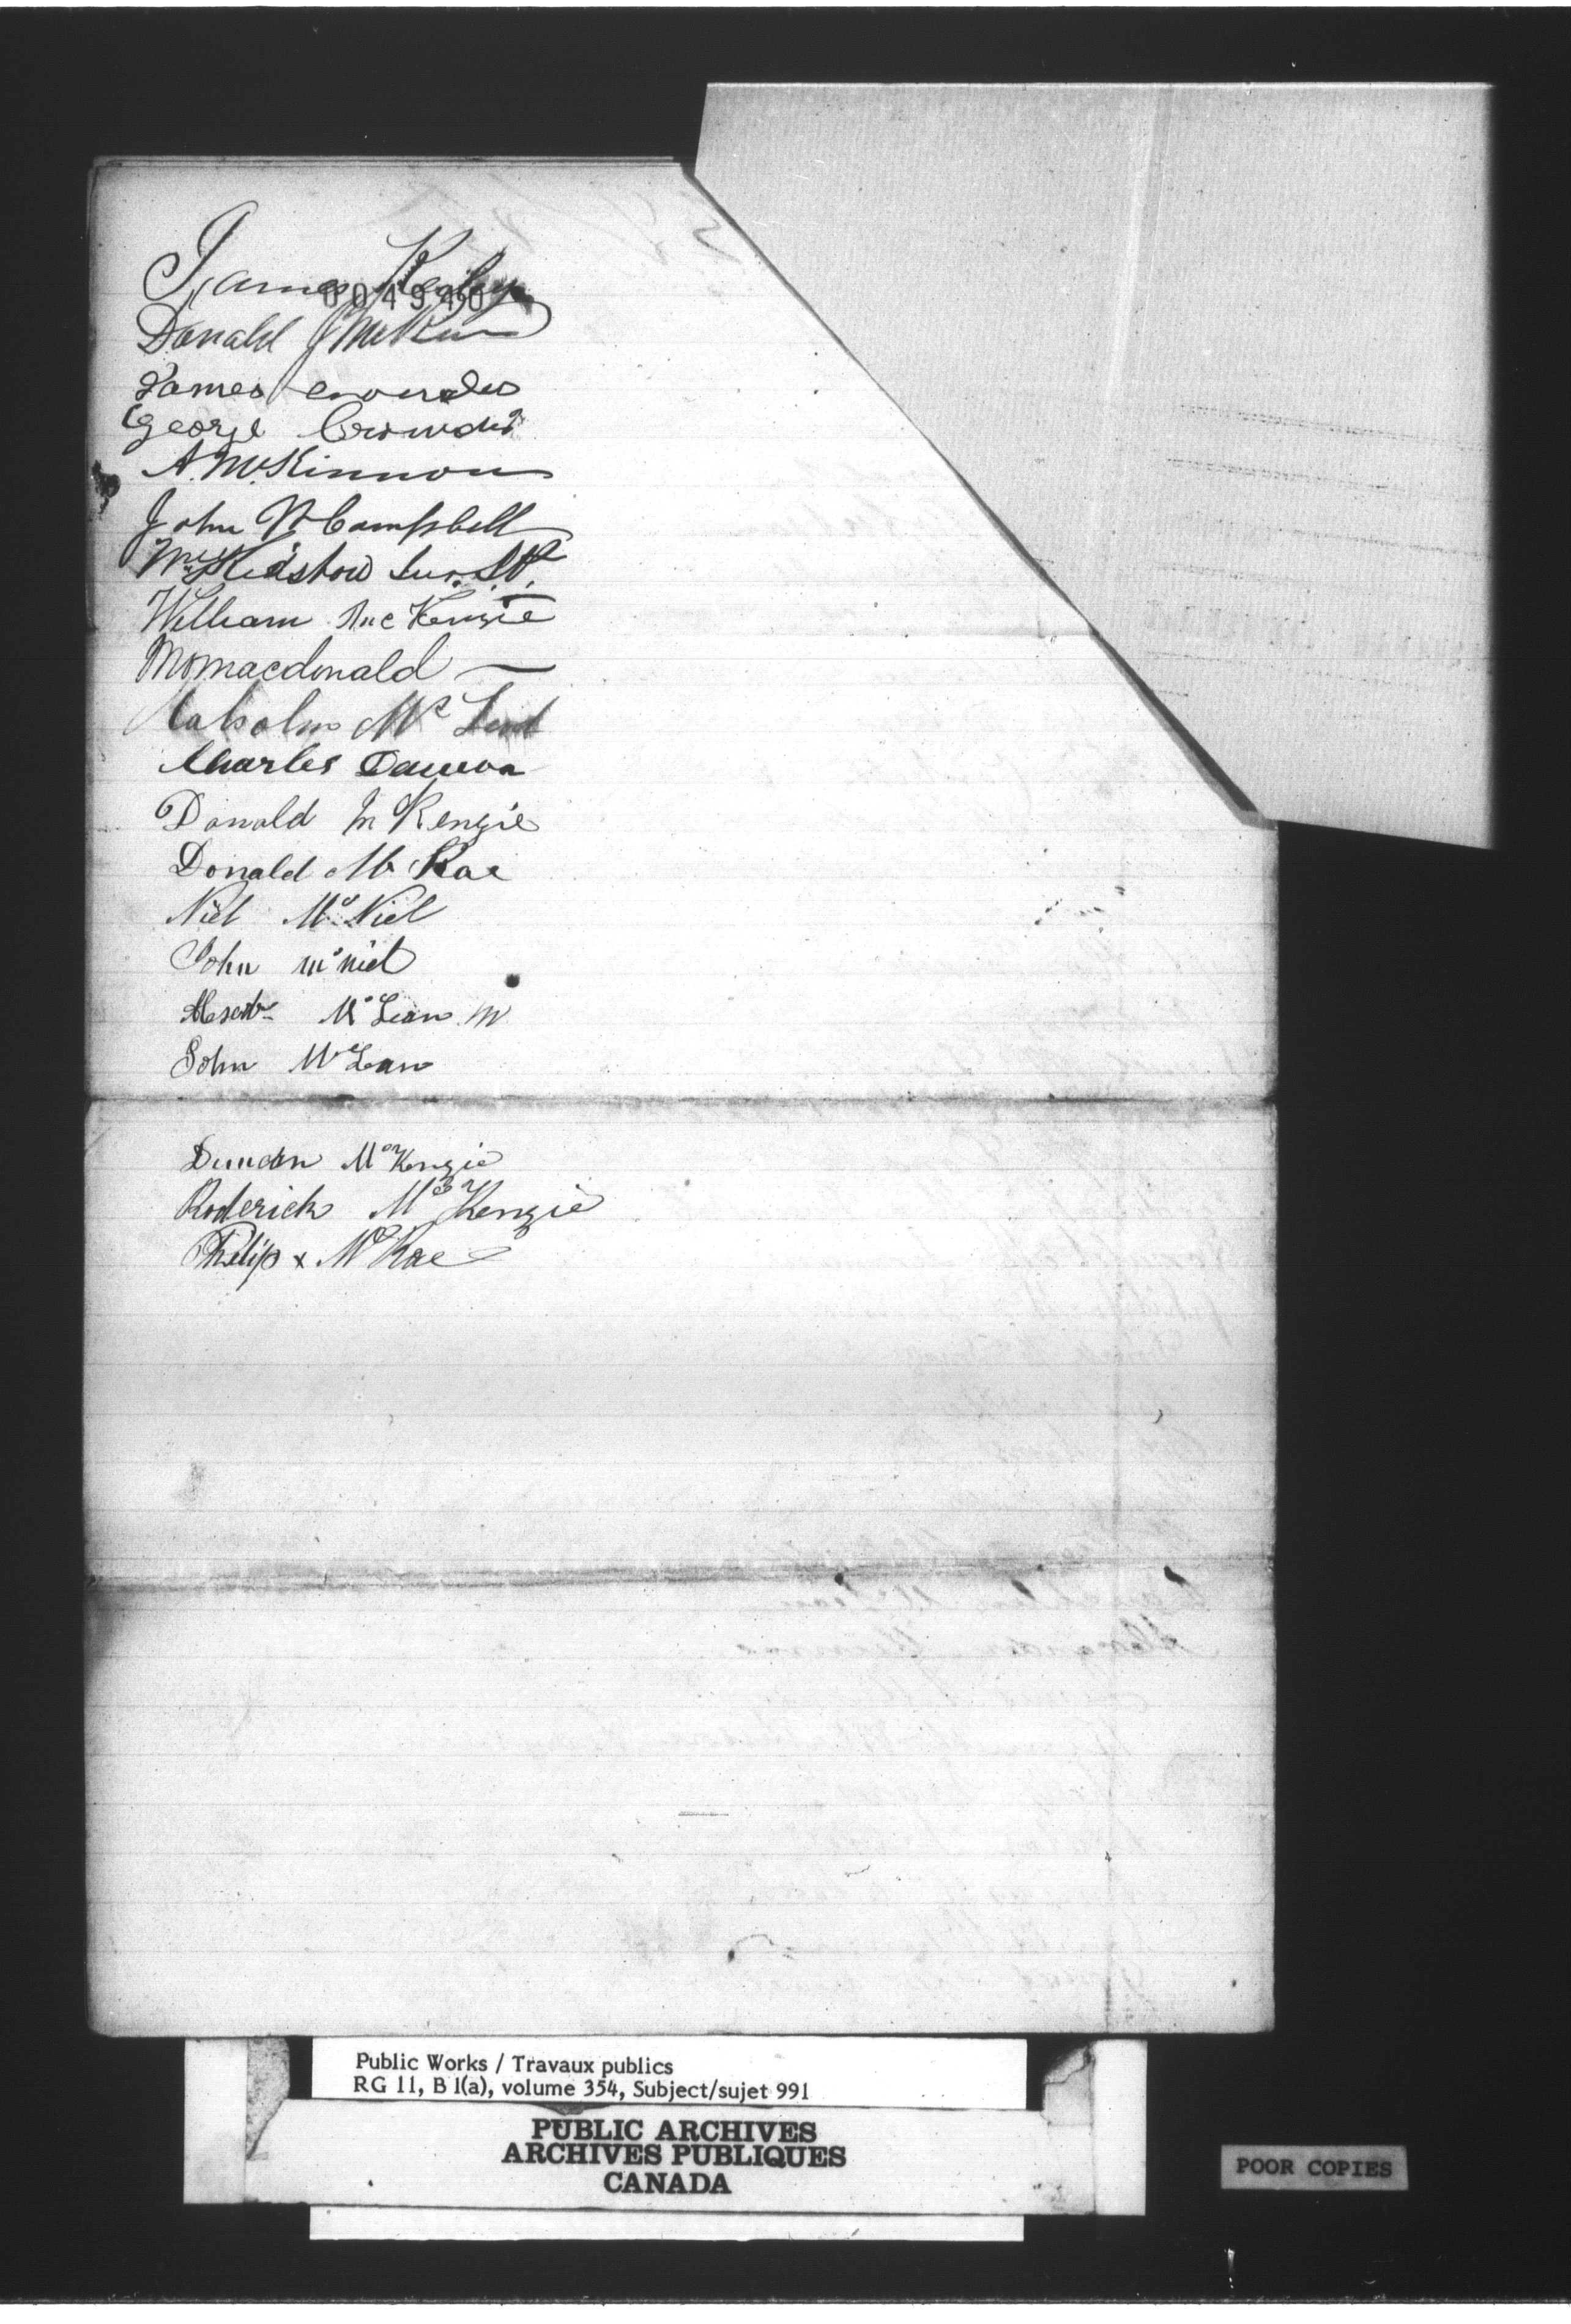 James Kerley
004940
Donald J McRae
James Crowdis
George Crowdis
A. McKinnon
John N Campbell
Wm Kidston Sur. St.
William McKenzie
M Macdonald
Malcolm Mc Leod
Charles Dauvon
Donald Mc Kenzie
Donald Mc Rae
Niel Mc Niel
John mc niel
Alexdr Mc Lean
John Mc Lean
Duncan McKenzie
Roderick Mc Kenzie
Philip x McRae
Public Works / Travaux publics
RG 11, B 1(a), volume 354, Subject/sujet 991
PUBLIC ARCHIVES
ARCHIVES PUBLIQUES
CANADA
POOR COPIES